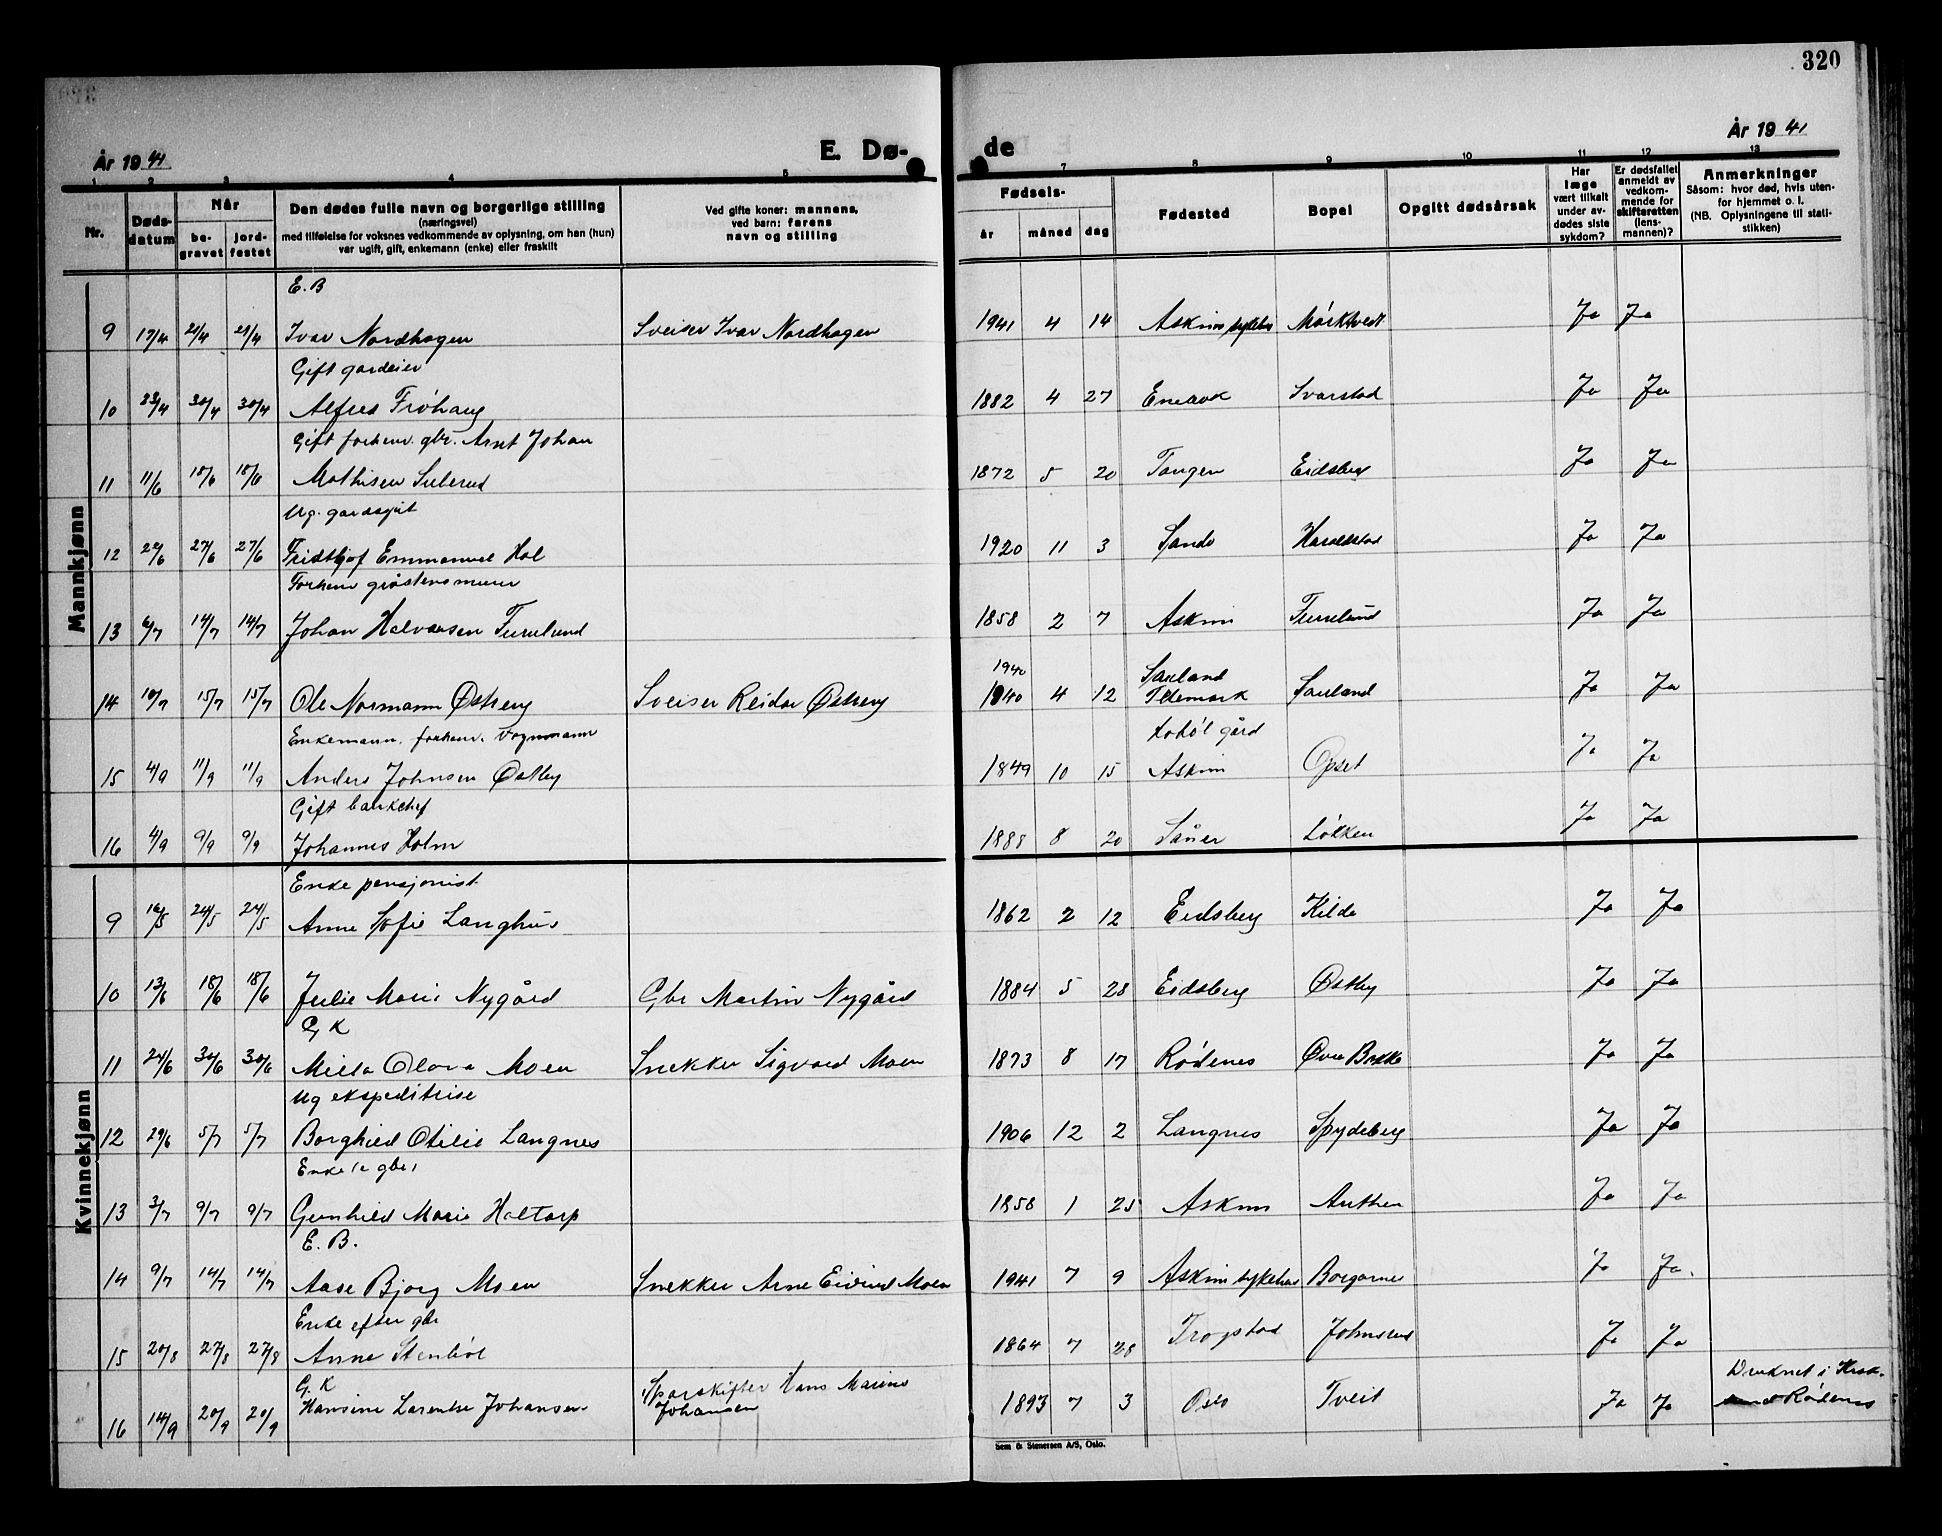 320
År 1941
E. Dø-
de
År 1941
1 2 3 4 5 7 8 9 10 11 12 13
Nr.
Døds-
datum
Når
be-
gravet
jord-
festet
Den dødes fulle navn og borgerlige stilling
(næringsvei)
med tilføielse for voksnes vedkommende av oplysning, om han (hun)
var ugift, gift, enkemann (enke) eller fraskilt
Ved gifte koner: mannens,
ved barn: farens
navn og stilling
Fødsels-
år måned dag
Fødested
Bopel
Opgitt dødsårsak
Har
læge
vært tilkalt
under av-
dødes siste
sykdom?
Er dødsfallet
anmeldt av
vedkom-
mende for
skifteretten
(lens-
mannen)?
Anmerkninger
Såsom: hvor død, hvis uten-
for hjemmet o. l.
(NB. Oplysningene til stati-
stikken)
Mannkjønn
E. B
9 17/4 21/4 21/4 Ivar Nordhagen Sveiser Ivar Nordhagen 1941 4 14 Askim sykehus Mørktvedt Ja Ja
Gift gardeier
10 23/4 30/4 30/4 Alfred Frøhaug 1882 4 27 Enebakk Svarstad Ja Ja
Gift forhenv. gbr. Arnt Johan
11 11/6 18/6 18/6 Mathisen Sulerud 1872 5 20 Tangen Eidsberg Ja Ja
Ug. gardsgut
12 22/6 27/6 27/6 Fridthjof Emmanuel Hol 1920 11 3 Sande Haraldstad Ja Ja
Forhenv gråstensmurer
13 6/7 14/7 14/7 Johan Halvorsen Furulund 1858 2 7 Askim Furulund Ja Ja
1940 Sauland
14 10/7 15/7 15/7 Ole Normann Østreng Sveiser Reidar Østreng 1940 4 12 Telemark Sauland Ja Ja
Enkemann. forhenv. Vognmann gård
15 4/9 11/9 11/9 Anders Johnsen Østby 1849 10 15 Askim Opset Ja Ja
Gift bankchef
16 4/9 9/9 9/9 Johannes Holm 1888 8 20 Såner Løkken Ja Ja
Kvinnekjønn
Enke pensjonist
9 16/5 24/5 24/5 Anne Sofie Langhus 1862 2 12 Eidsberg Kilde Ja Ja
10 13/6 18/6 18/6 Julie Marie Nygård Gbr Martin Nygård 1884 5 28 Eidsberg Østby Ja Ja
G K
11 24/6 30/6 30/6 Milla Olava Moen Snekker Sigvard Moen 1873 8 17 Rødenes Øvre Bakke Ja Ja
Ug ekspeditrise
12 29/6 5/7 5/7 Borghild Otilie Langnes 1906 12 2 Langnes Spydeberg Ja Ja
Enke e gbr.
13 3/7 9/7 9/7 Gunhild Marie Holtorp 1858 1 25 Askim Authen Ja Ja
E. B.
14 9/7 14/7 14/7 Aase Bjorg Moen Snekker Arne Eivind Moen 1941 7 9 Askim sykehus Borgarnes Ja Ja.
Enke efter gbr
15 20/8 27/8 27/8 Anne Stenbøl 1864 7 28 Trøgstad Johnsrud Ja Ja
G. K Sporskifter Hans Marino Druknet i
16 14/9 20/9 20/9 Hansine Larentse Johansen Johansen 1893 7 3 Oslo Tveit Ja Ja Rødenes
Sem & Stenersen A/S, Oslo.